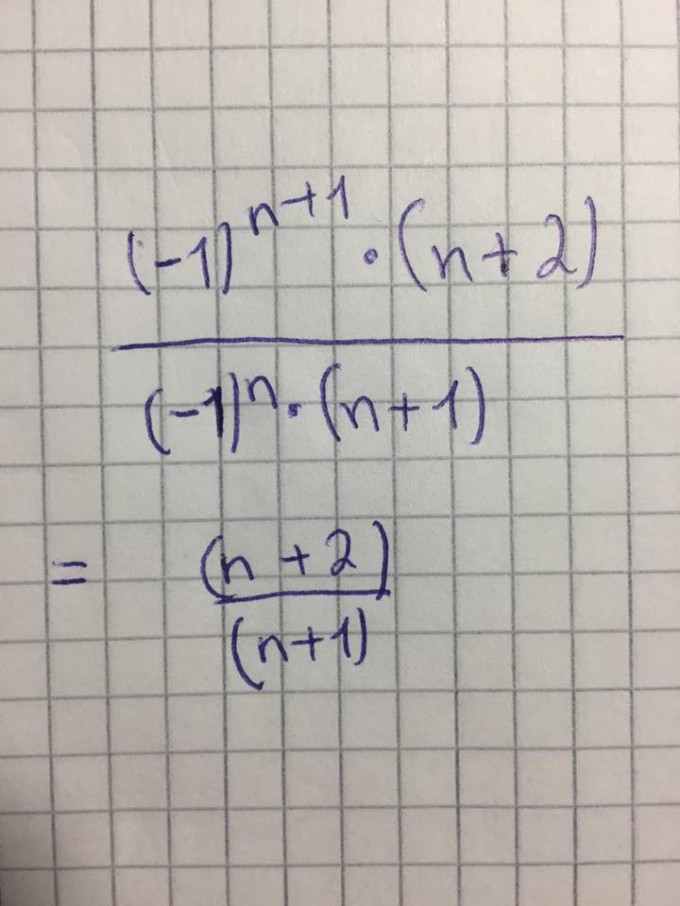 (-1)^{n+1} · (n+2)
(-1)^n · (n+1)
= (n+2)
(n+1)